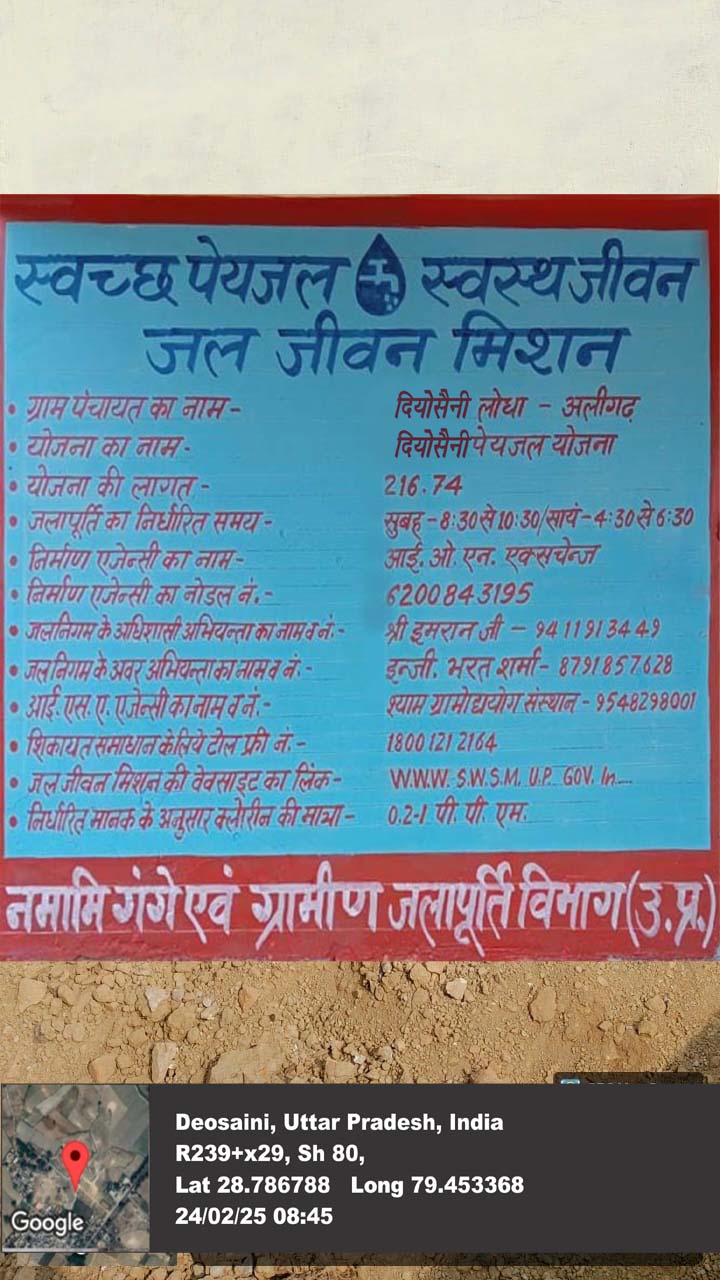 स्वच्छ पेयजल स्वस्थ जीवन
जल जीवन मिशन
• ग्राम पंचायत का नाम - दियोसैनी लोधा - अलीगढ़
• योजना का नाम - दियोसैनी पेयजल योजना
• योजना की लागत - 216.74
• जलापूर्ति का निर्धारित समय - सुबह - 8:30 से 10:30/सायं - 4:30 से 6:30
• निर्माण एजेन्सी का नाम - आई. ओ. एन. एक्सचेन्ज
• निर्माण एजेन्सी का नोडल नं. - 6200843195
• जलनिगम के अधिशासी अभियन्ता का नाम व नं. - श्री इमरान जी - 9411913449
• जलनिगम के अवर अभियन्ता का नाम व नं. - इन्जी. भरत शर्मा - 8791857628
• आई. एस. ए. एजेन्सी का नाम व नं. - श्याम ग्रामोद्ययोग संस्थान - 9548298001
• शिकायत समाधान के लिये टोल फ्री नं. - 1800 121 2164
• जल जीवन मिशन की वेवसाइट का लिंक - W.W.W. S.W.S.M. U.P. GOV. In....
• निर्धारित मानक के अनुसार क्लोरीन की मात्रा - 0.2-1 पी. पी. एम.
नमामि गंगे एवं ग्रामीण जलापूर्ति विभाग (उ.प्र.)
Deosaini, Uttar Pradesh, India
R239+x29, Sh 80,
Lat 28.786788 Long 79.453368
24/02/25 08:45
Google